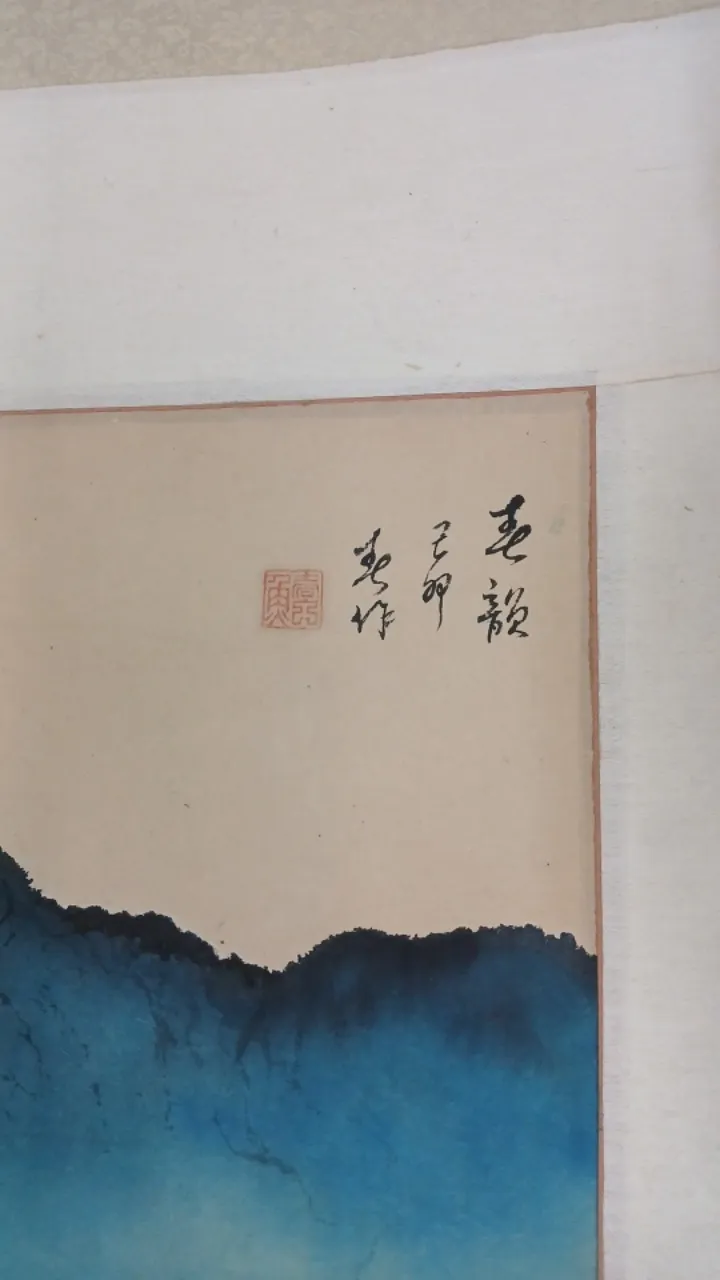 春韻
己卯
春作